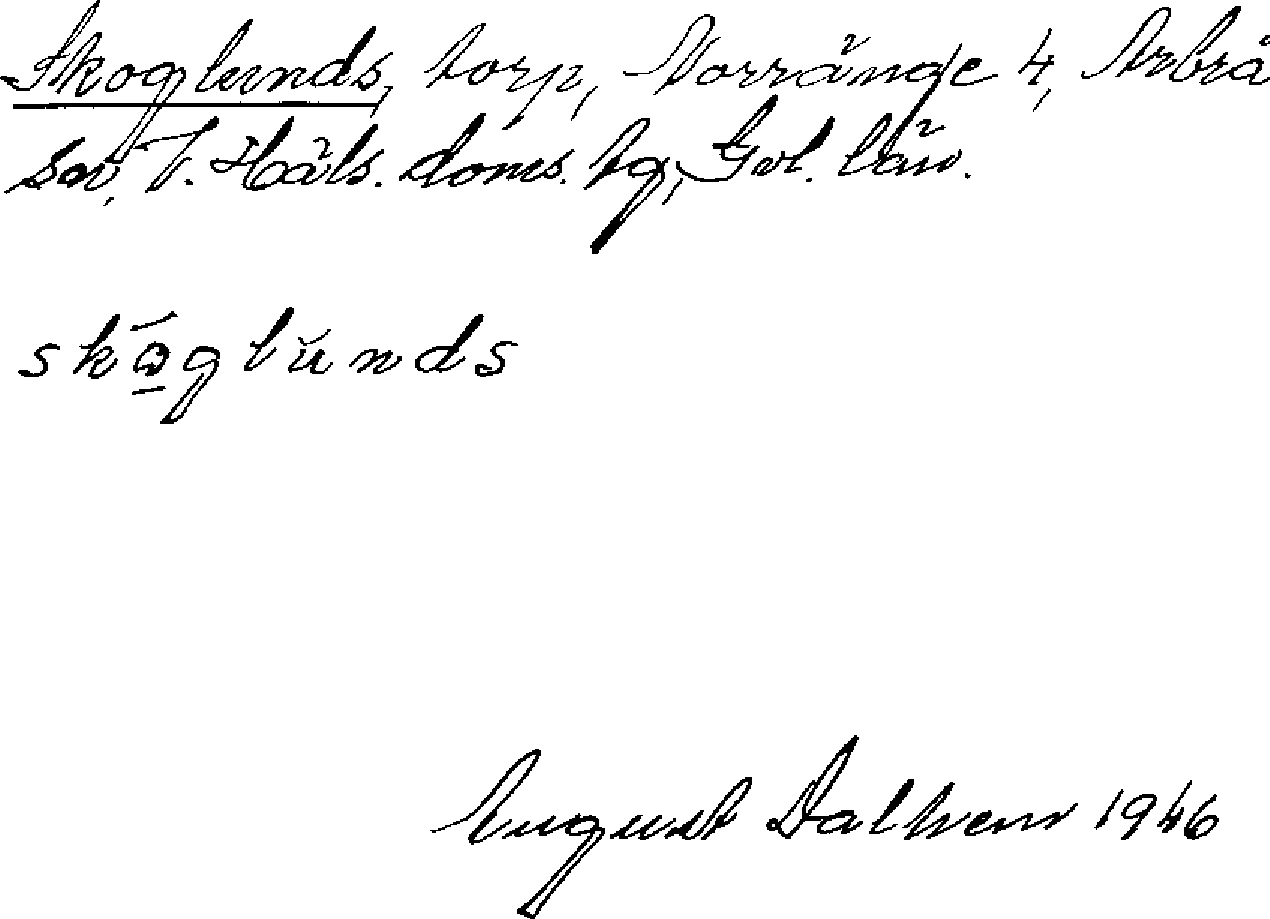 Skoglunds, torp, Norränge 4, Arbrå
sn, V. Häls. doms. tg, Gvl. län.
skō̱glŭnds
August Dalhem 1946